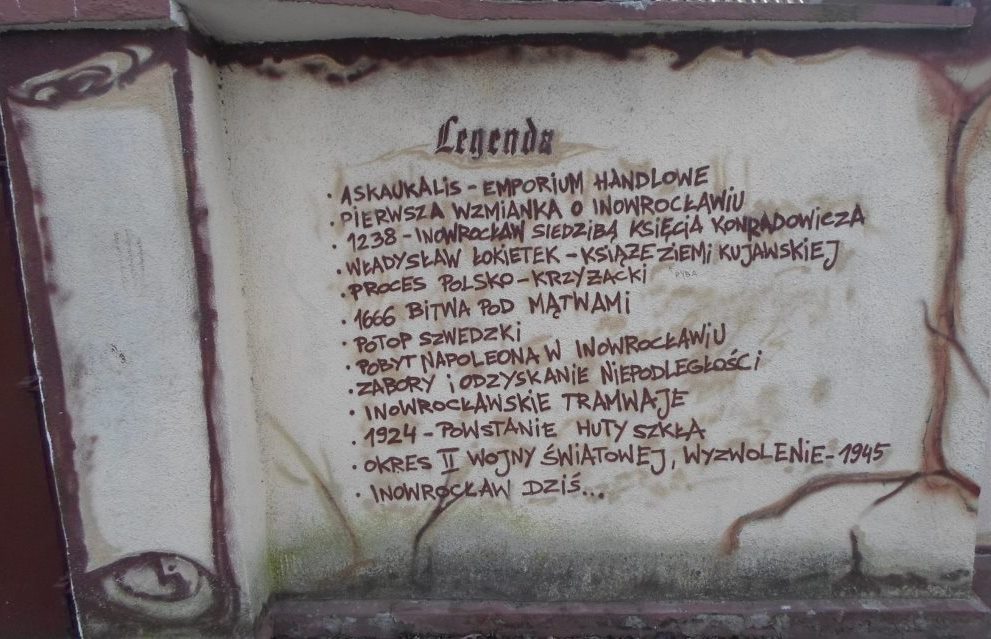 Legenda
· ASKAUKALIS - EMPORIUM HANDLOWE
· PIERWSZA WZMIANKA O INOWROCŁAWIU
· 1238 - INOWROCŁAW SIEDZIBĄ KSIĘCIA KONRADOWICZA
· WŁADYSŁAW ŁOKIETEK - KSIĄŻE ZIEMI KUJAWSKIEJ
· PROCES POLSKO - KRZYŻACKI
· 1666 BITWA POD MĄTWAMI
· POTOP SZWEDZKI
· POBYT NAPOLEONA W INOWROCŁAWIU
· ZABORY i ODZYSKANIE NIEPODLEGŁOŚCI
· INOWROCŁAWSKIE TRAMWAJE
· 1924 - POWSTANIE HUTY SZKŁA
· OKRES II WOJNY ŚWIATOWEJ, WYZWOLENIE - 1945
· INOWROCŁAW DZIŚ...